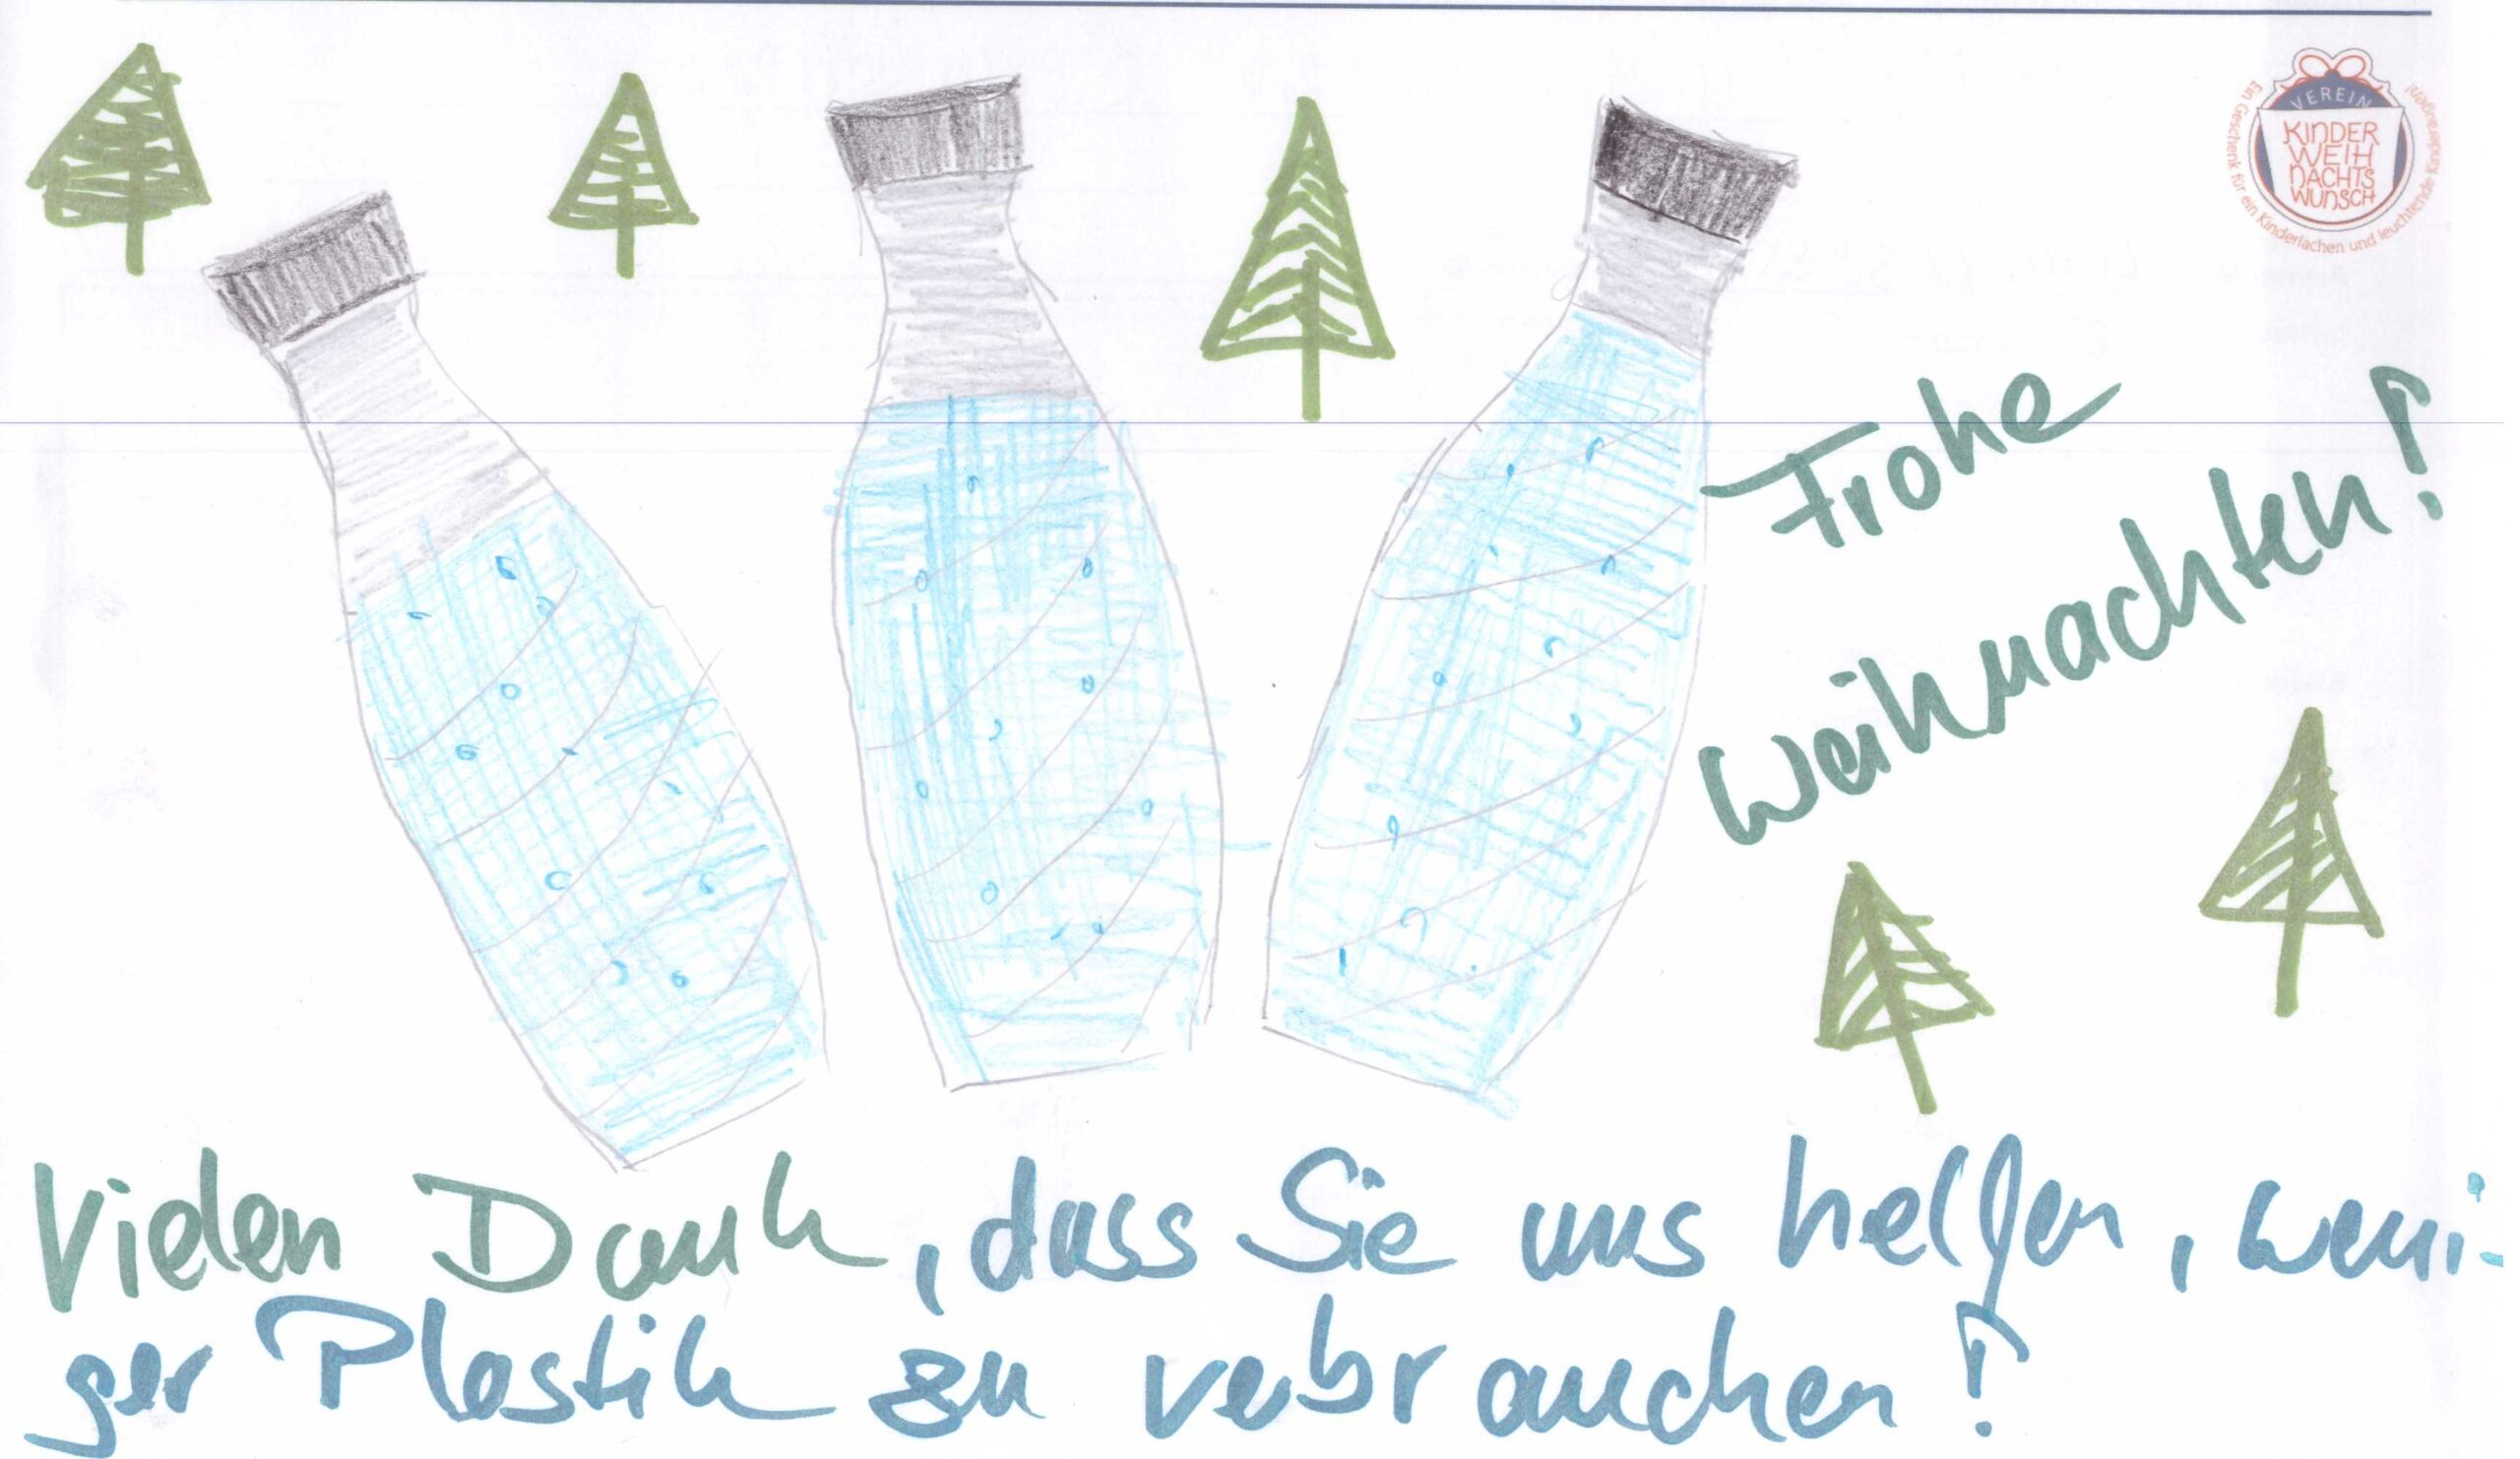 VEREIN
KINDER
WEIH
NACHTS
WUNSCH
Ein Geschenk für ein Kinderlachen und leuchtende Kinderaugen!
Frohe
Weihnachten!
Vielen Dank, dass Sie uns helfen, weni-
ger Plastik zu vebrauchen!